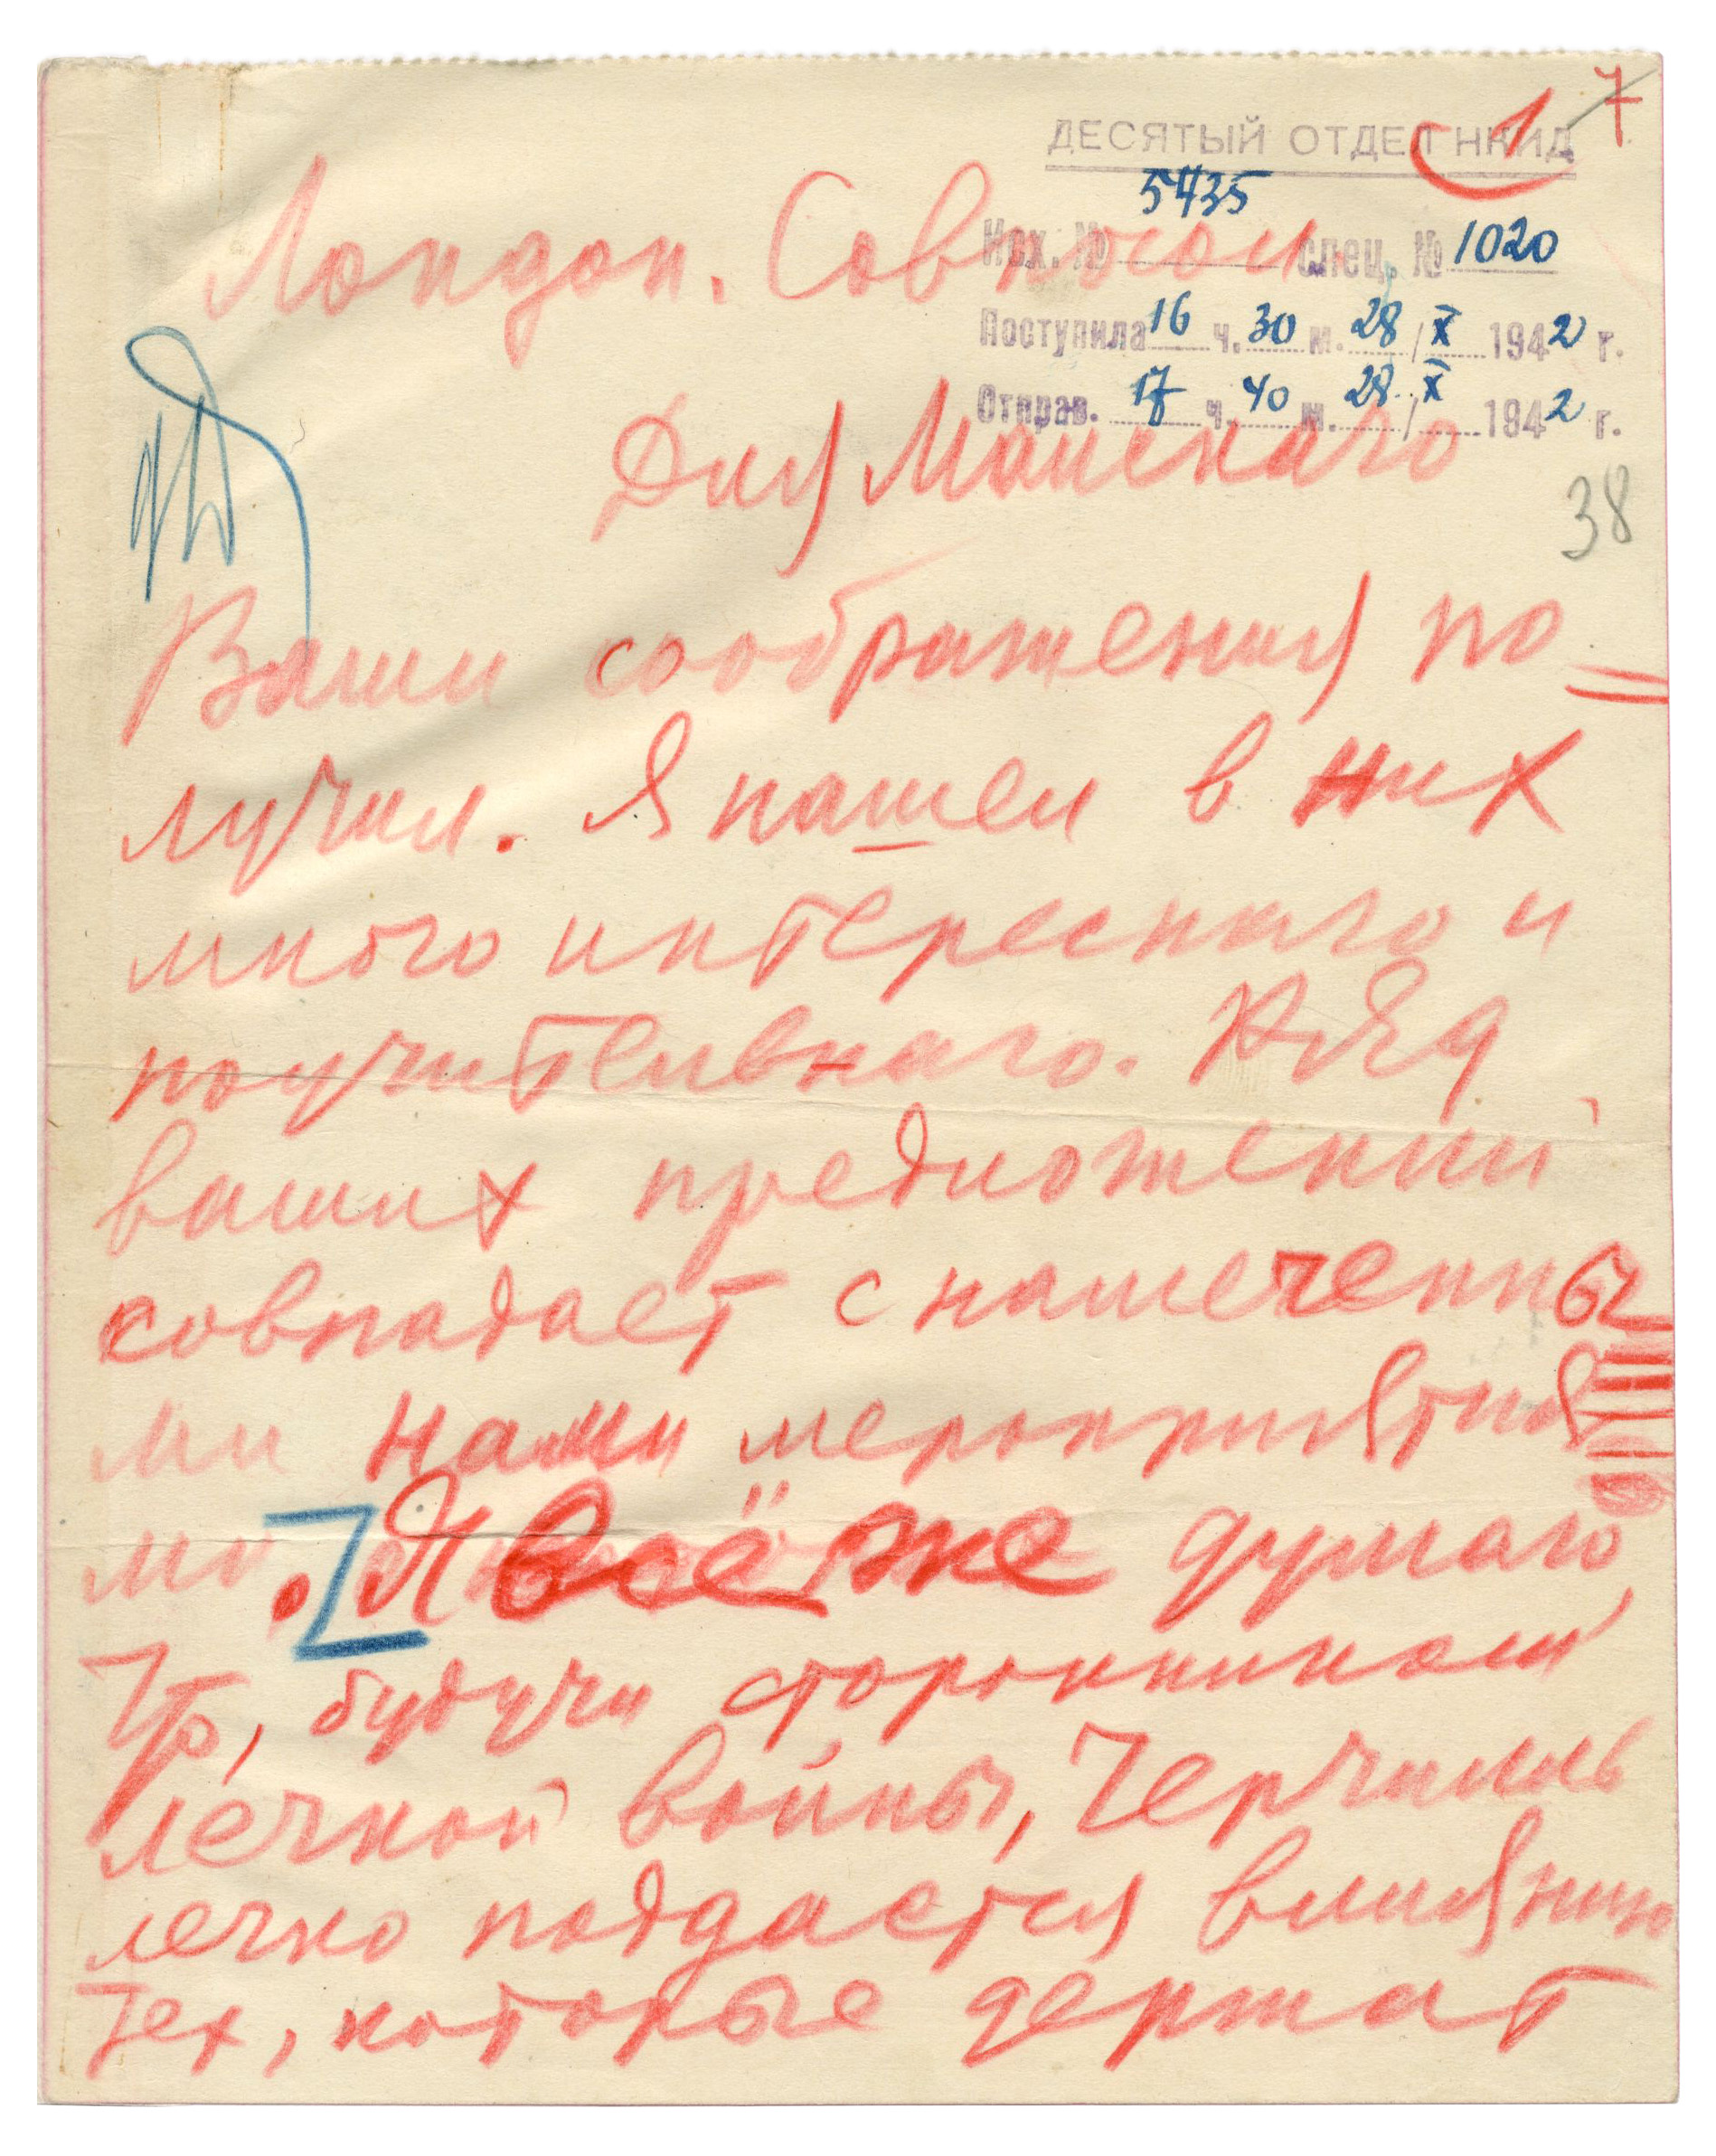 7
1
ДЕСЯТЫЙ ОТДЕЛ НКИД
Исх. № 5435 спец. № 1020
Поступила 16 ч. 30 м. 28/X 1942 г.
Отправ. 17 ч. 40 м. 28/X 1942 г.
38
Лондон. Совпосол.
Для Майскаго
Ваши соображения по=
лучил. Я нашел в них
много интереснаго и
поучительнаго. Ряд
ваших предложений
совпадает с намеченны
ми нами мероприятия
ми. Я всё же думаю,
что, будучи сторонником
легкой войны, Черчилль
легко поддается влиянию
тех, которые держат